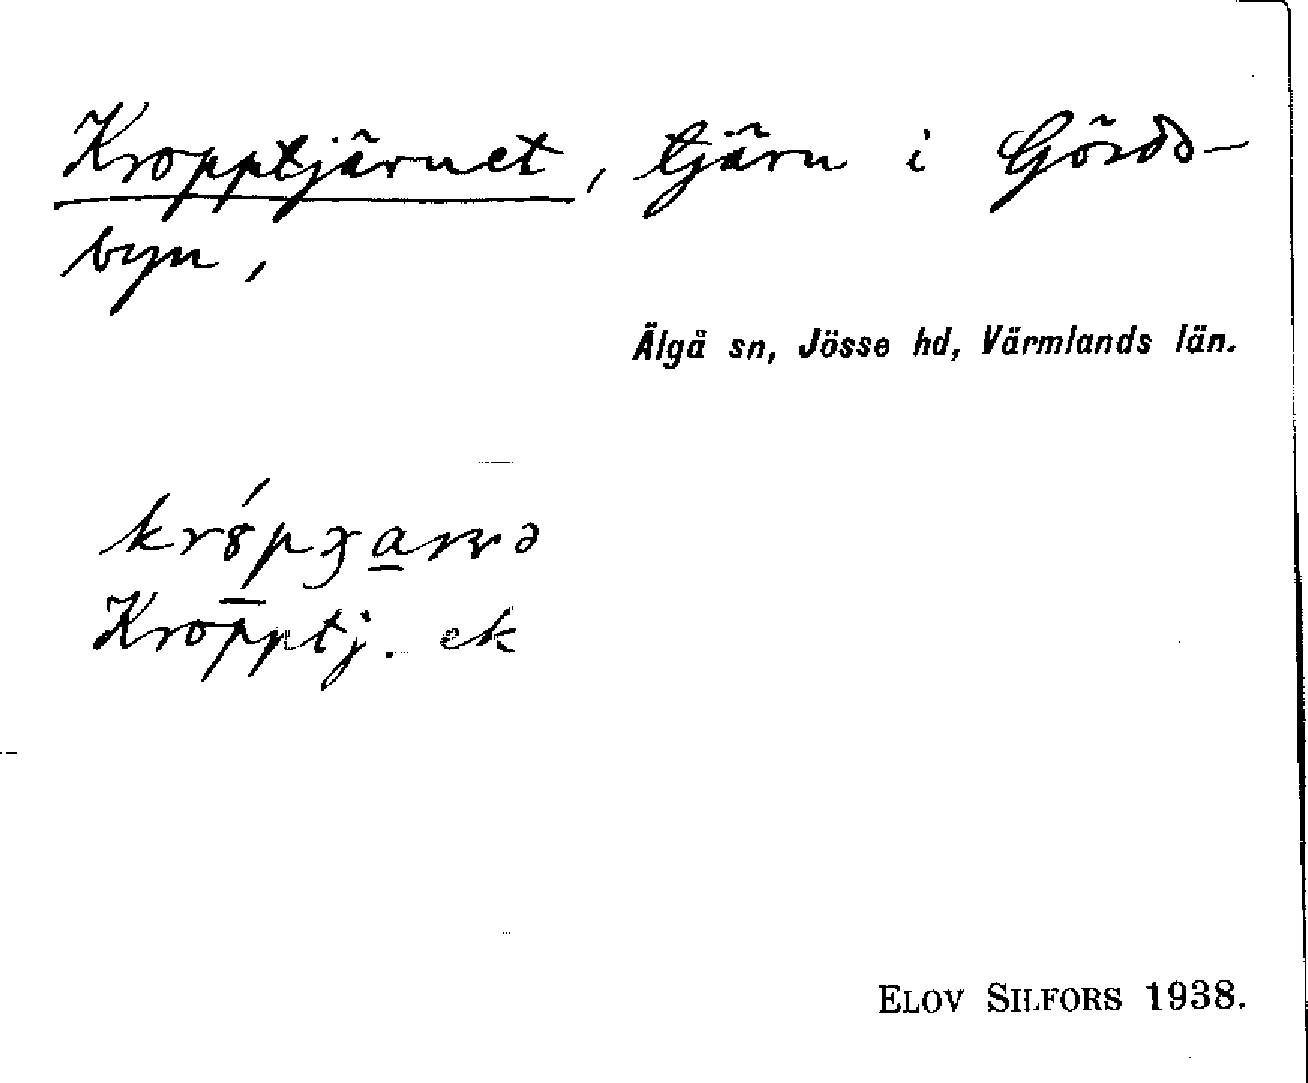 Kropptjärnet, tjärn i Görds-
byn,
Älgå sn, Jösse hd, Värmlands län.
Kropptj. ek
ELOV SILFORS 1938.